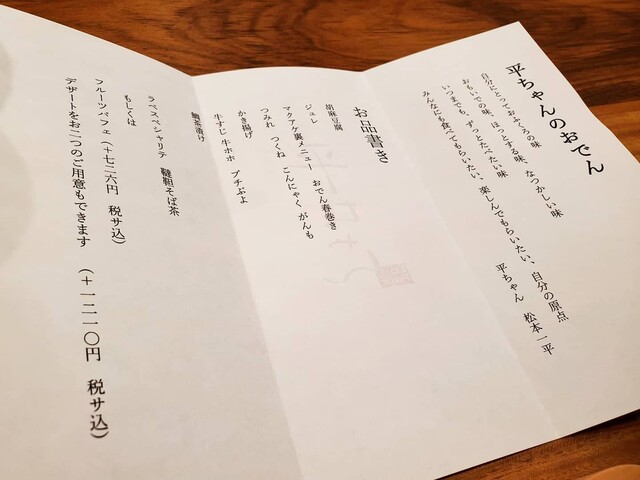 平ちゃんのおでん
自分にとっておふくろの味
おもいでの味、ほっとする味、なつかしい味
いつまでも、ずっとたべたい味
みんなにも食べてもらいたい、楽しんでもらいたい、自分の原点
平ちゃん 松本一平
お品書き
胡麻豆腐
ジュレ
マクアケ裏メニュー おでん春巻き
つみれ つくね こんにゃく がんも
かき揚げ
牛すじ 牛ホホ プチぷよ
鯛茶漬け
ラペスペシャリテ 韃靼そば茶
もしくは
フルーツパフェ(+七二六円 税サ込)
デザートをお二つのご用意もできます (+一二一〇円 税サ込)